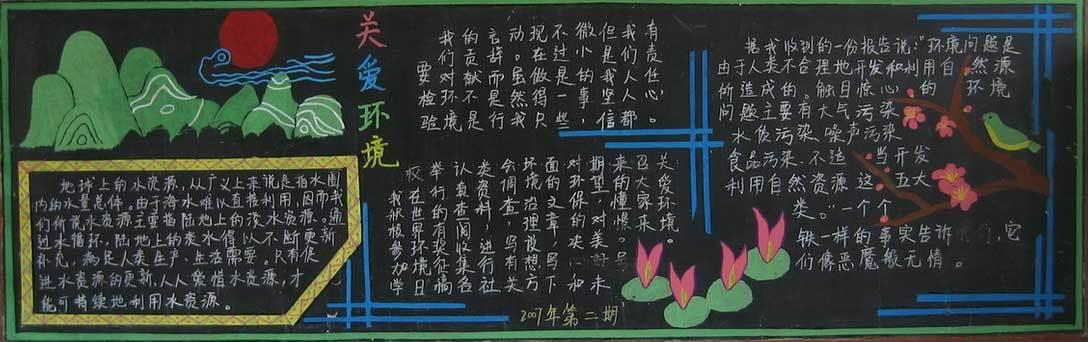 关爱环境
地球上的水资源，从广义上来说是指水圈
内的水量总体。由于海水难以直接利用，因而我
们所说水资源主要指陆地上的淡水资源。通
过水循环，陆地上的淡水得以不断更新
补充，满足人类生产、生活需要。只有促
进水资源的更新，人人爱惜水资源，才
能可持续地利用水资源。
要检验
我们对环境
的贡献不是
言辞而是行
动。虽然我
现在做得只
不过是一些
微小的事，
但是我坚信
我们人人都
有责任心。
我积极参加学
校在世界环境日
举行的有奖征稿
认真查阅收集各
类资料，进行社
会调查，写有关
环境治理设想方
面的文章，写下
对环保的决心和
期望，对美好未
来的憧憬。号
召大家来
关爱环境。
据我收到的一份报告说：“环境问题是
由于人类不合理地开发和利用自然源
所造成的。触目惊心的环境
问题主要有大气污染
水质污染、噪声污染
食品污染、不适当开发
利用自然资源这五大
类。”一个个
铁一样的事实告诉我们，它
们像恶魔般无情。
2007年第二期